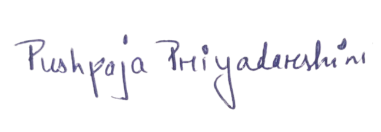 Pushpoja Priyadareshini